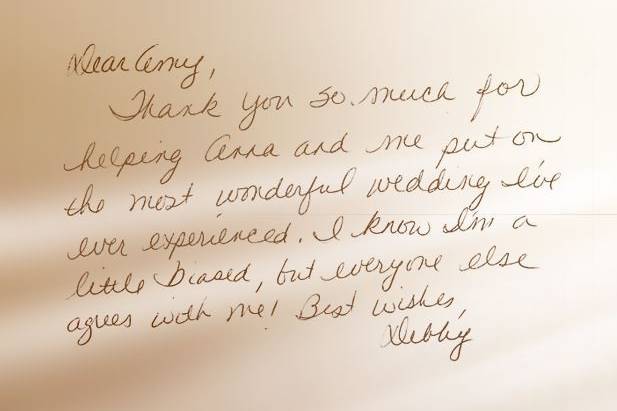 Dear Amy,
Thank you so much for
helping Anna and me put on
the most wonderful wedding I've
ever experienced. I know I'm a
little biased, but everyone else
agrees with me! Best wishes,
Debby